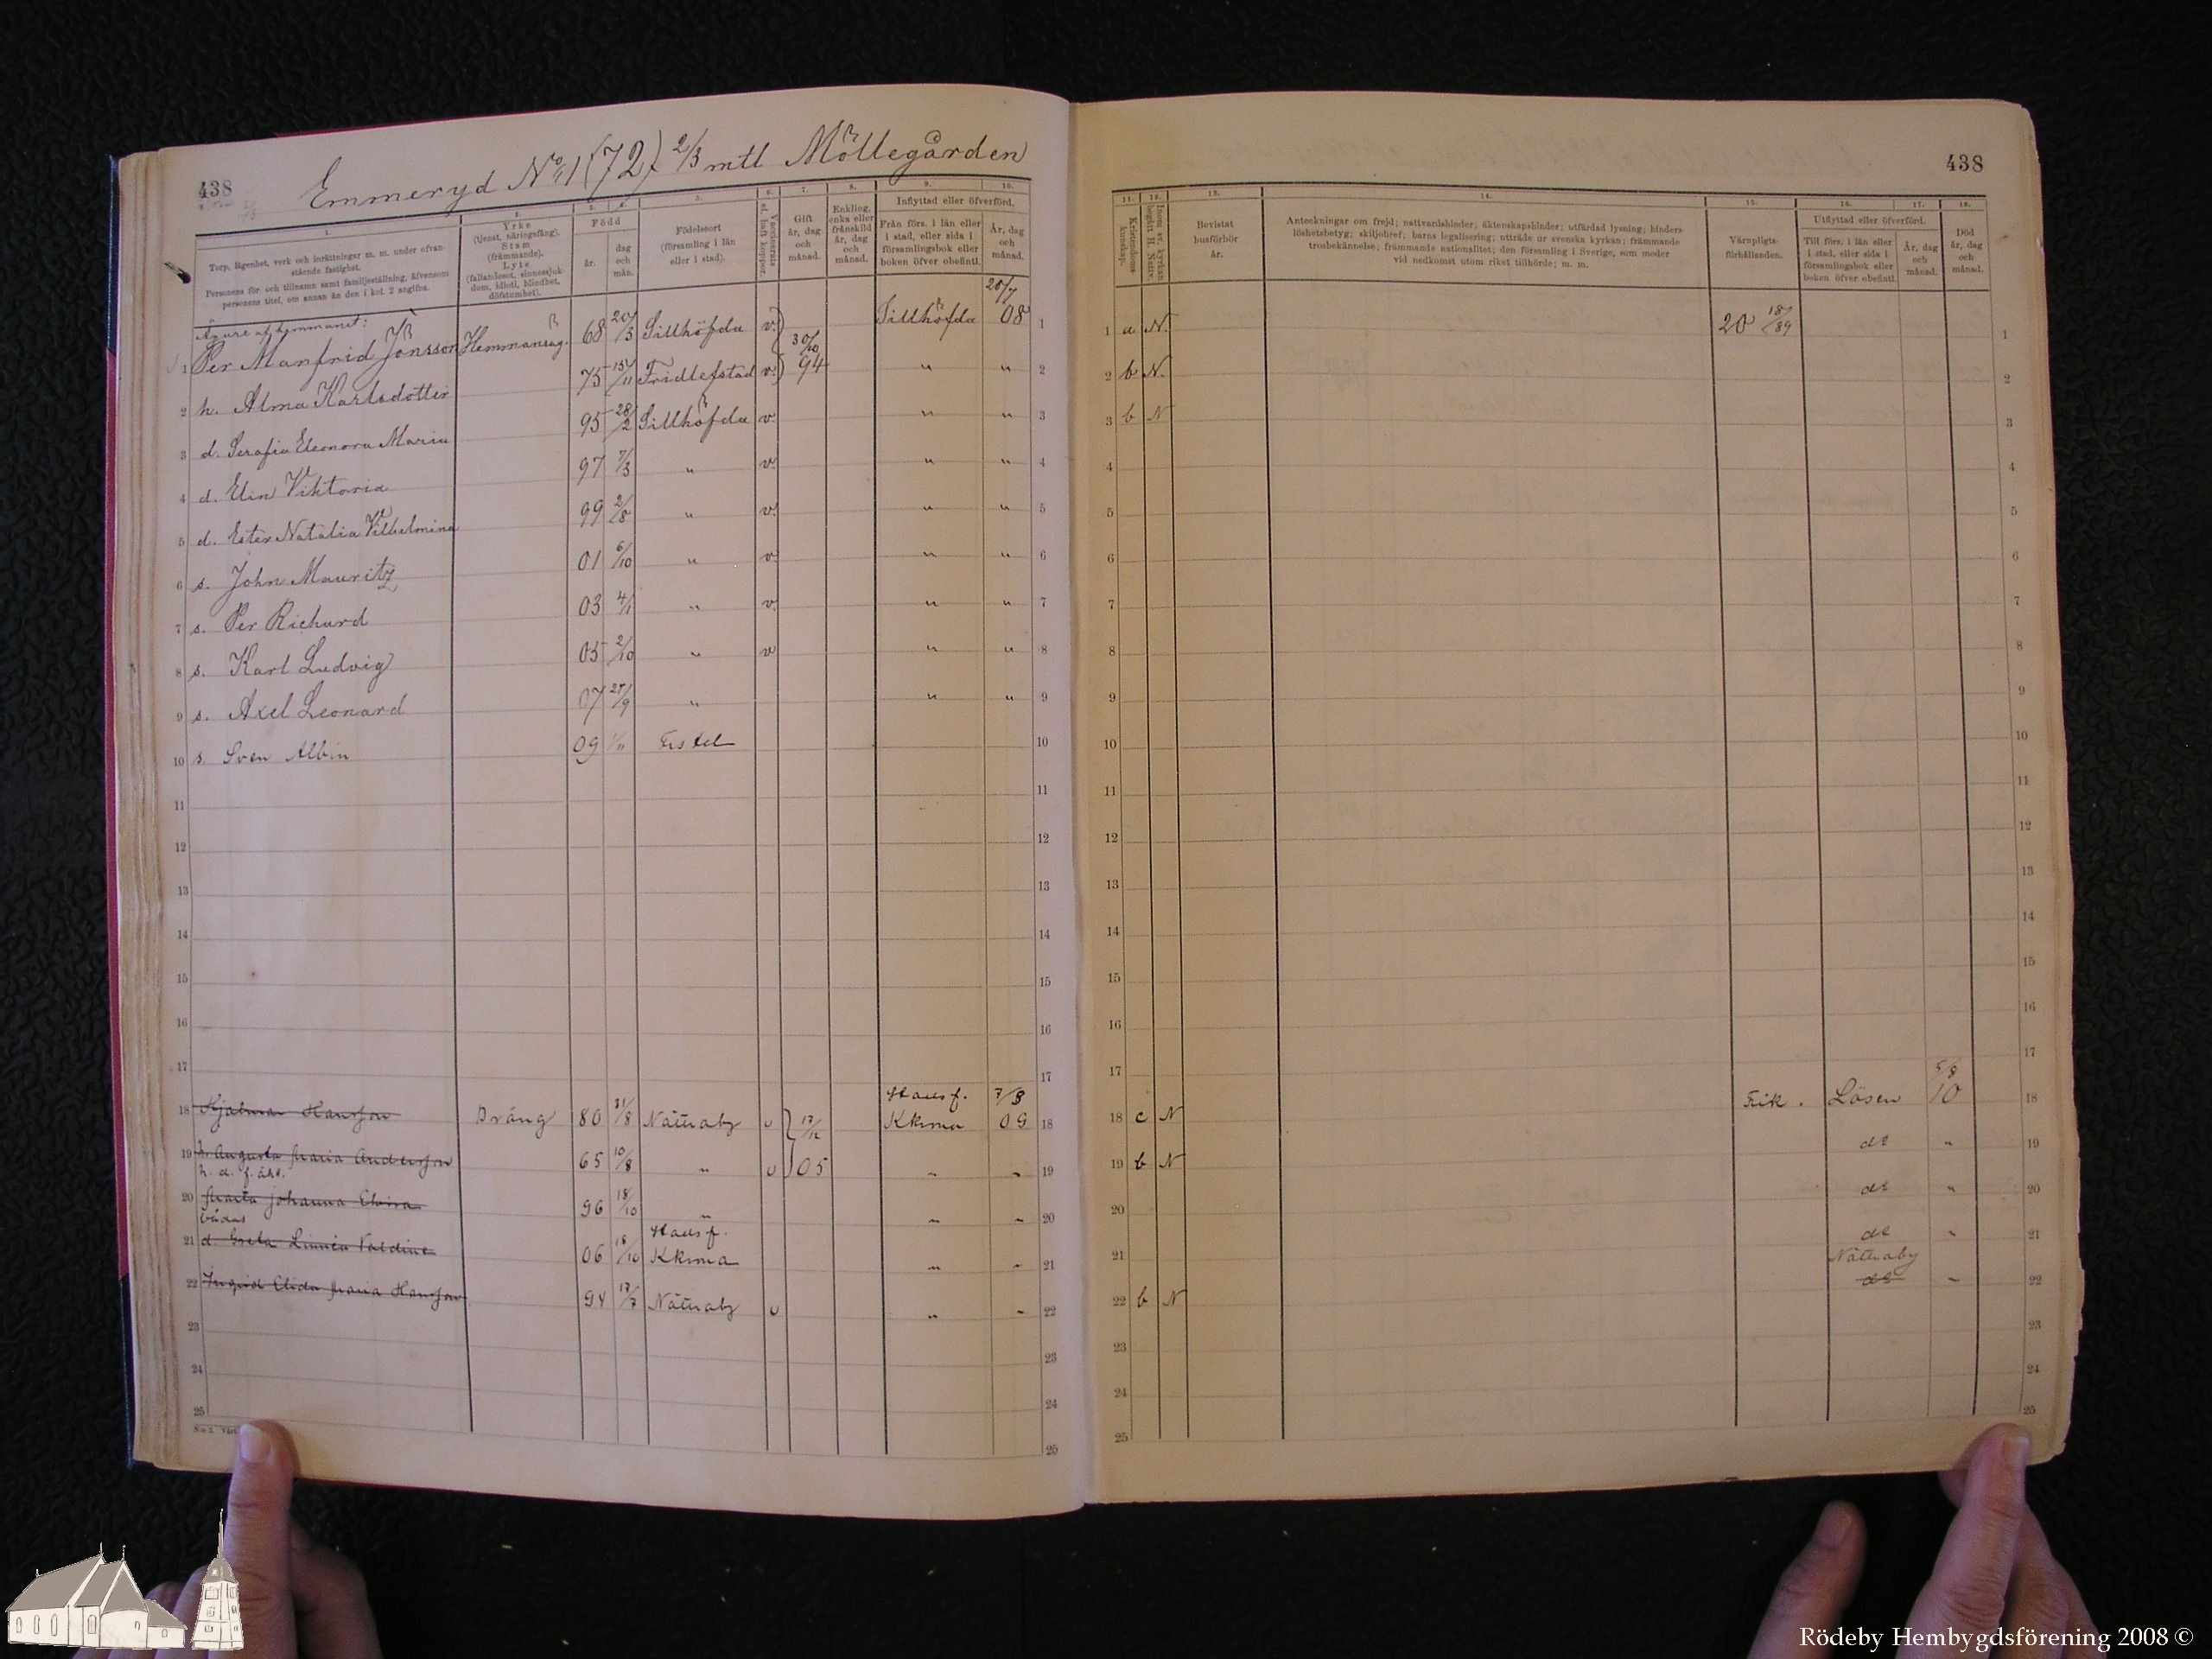 438
Emmeryd No 1 (72) 2/3 mtl Möllegården
1. 2. 3. 4. 5. 6. 7. 8. 9. 10.
Torp, lägenhet, verk och inrättningar m. m. under ofvanstående fastighet.
Personens för- och tillnamn samt familjeställning, äfvensom personens titel, om annan än den i kol. 2 angifna.
Yrke (tjenst, näringsfång). Stam (främmande). Lyte (fallandesot, sinnessjukdom, idioti, blindhet, döfstumhet).
Född
år. dag och mån.
Födelseort (församling i län eller i stad).
Vaccinerats el. haft koppor.
Gift år, dag och månad.
Enkling, enka eller frånskild år, dag och månad.
Inflyttad eller öfverförd.
Från förs. i län eller i stad, eller sida i församlingsbok eller boken öfver obefintl.
År, dag och månad.
Ägare af hemmanet:
1 Per Manfrid Jönsson Hemmansäg. 68 20/3 Sillhöfda v. 30/10 94 Sillhöfda 20/7 08 1
2 h. Alma Karlsdotter 75 15/11 Fridlefstad v. " " 2
3 d. Serafia Eleonora Maria 95 28/2 Sillhöfda v. " " 3
4 d. Elin Viktoria 97 7/3 " v. " " 4
5 d. Ester Natalia Vilhelmina 99 2/8 " v. " " 5
6 s. John Mauritz 01 6/10 " v. " " 6
7 s. Per Richard 03 4/1 " v. " " 7
8 s. Karl Ludvig 05 2/10 " v " " 8
9 s. Axel Leonard 07 /9 " " " 9
10 s Sven Albin 09 1/11 10
11 11
12 12
13 13
14 14
15 15
16 16
17 17
18 Hjalmar Hansson Dräng 80 31/8 Nättraby v 17/12 Stadsf. Kkrona 7/8 09 18
19 h. Augusta Maria Andersson 65 10/8 " v 05 " " 19
h. d. f. äkt.
20 Marta Johanna Elvira 96 18/10 " " " 20
bådas
21 d. Greta Linnéa Valdine 06 18/10 Stadsf. Kkrona " " 21
22 Ingrid Elida Maria Hansson 94 17/7 Nättraby v " " 22
23 23
24 24
25 25
438
11. 12. 13. 14. 15. 16. 17. 18.
Kristendomskunskap.
Inom sv. kyrkan begått H. Nattv.
Bevistat husförhör år.
Anteckningar om frejd; nattvardshinder; äktenskapshinder; utfärdad lysning; hinderslöshetsbetyg; skiljobref; barns legalisering; utträde ur svenska kyrkan; främmande trosbekännelse; främmande nationalitet; den församling i Sverige, som moder vid nedkomst utom riket tillhörde; m. m.
Värnpligtsförhållanden.
Utflyttad eller öfverförd.
Till förs. i län eller i stad, eller sida i församlingsbok eller boken öfver obefintl.
År, dag och månad.
Död år, dag och månad.
1 a N. 20 18/89 1
2 b N. 2
3 b N 3
4 4
5 5
6 6
7 7
8 8
9 9
10 10
11 11
12 12
13 13
14 14
15 15
16 16
17 17
18 c N Frik. Lösen 5/8 10 18
19 b N do " 19
20 do " 20
21 do " 21
22 b N Nättraby do " 22
23 23
24 24
25 25
Rödeby Hembygdsförening 2008 ©